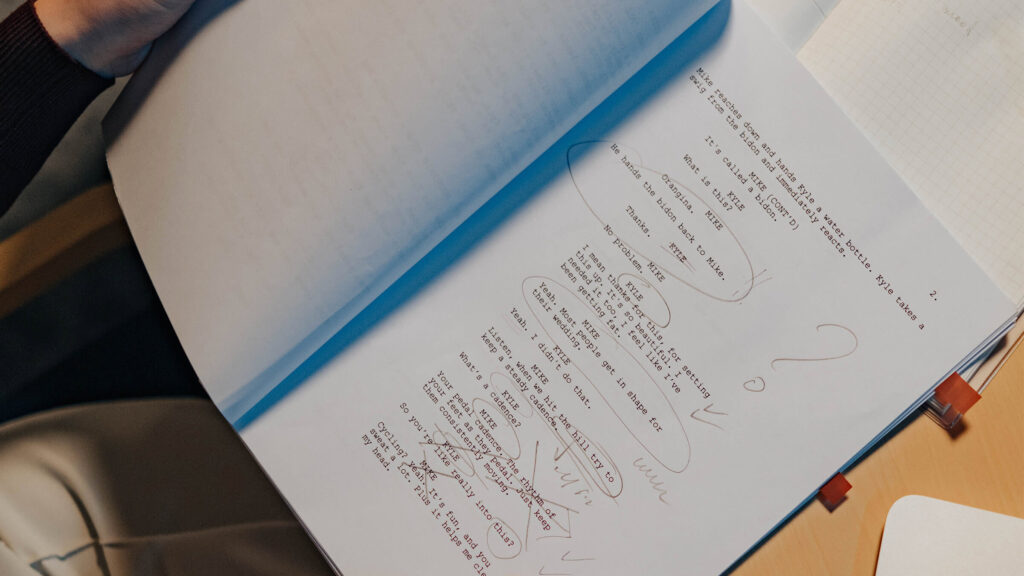 2.
Mike reaches down and hands Kyle a water bottle. Kyle takes a
swig from the bidon and immediately reacts.
MIKE (CONT'D)
It's called a bidon.
KYLE
What is this?
MIKE
Orangina.
He hands the bidon back to Mike.
KYLE
Thanks.
MIKE
No problem.
KYLE
I mean thanks for this, for setting
this up, it's so beautiful and I
needed it too, I feel like I've
been getting fat.
MIKE
Yeah. Most people get in shape for
their wedding.
KYLE
Yeah. I didn't do that.
MIKE
Listen, when we hit the hill try to
keep a steady cadence.
KYLE
What's a cadence?
MIKE
Your pedal cadence. The rhythm of
your feet as they pedal. Just keep
them consistently moving.
KYLE
So you're like really into this?
MIKE
Cycling? Yeah, it's fun, and you
sweat a lot. Plus it helps me
my head.
?